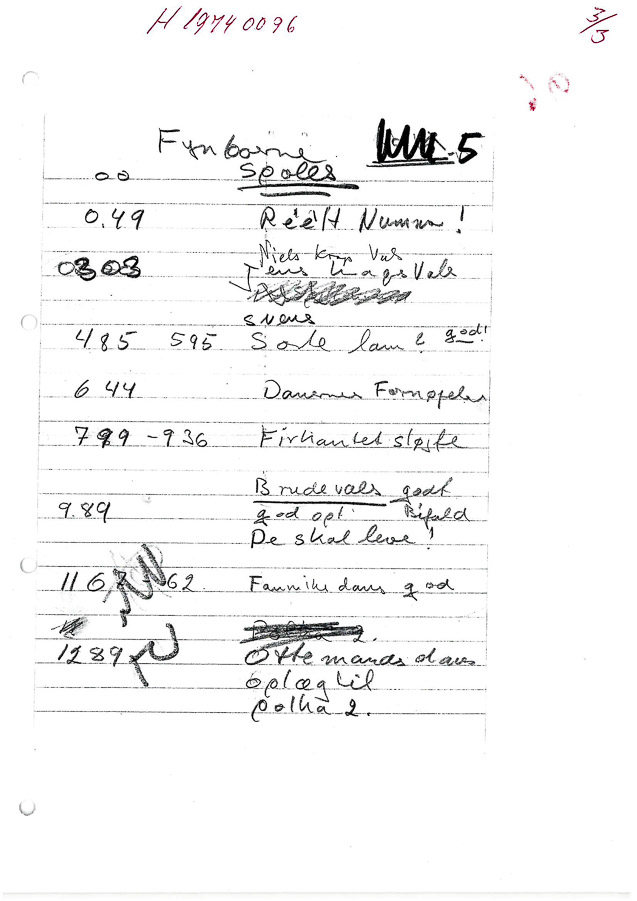 H 19740096
3/3
Fynboerne 5
00 Spoles
0.49 Réélt Nummer!
0303 Niels Vals
ens Vals
svens
485 595 Sorte lam? god!
644 Dansernes Fornøjelse
799 - 936 Firkantet sløjfe
Brudevals godt
9.89 god opt. Bifald
De skal leve!
1167 62 Fannikedans god
Polka 2.
1289 Ottemands dans
oplæg til
polka 2.